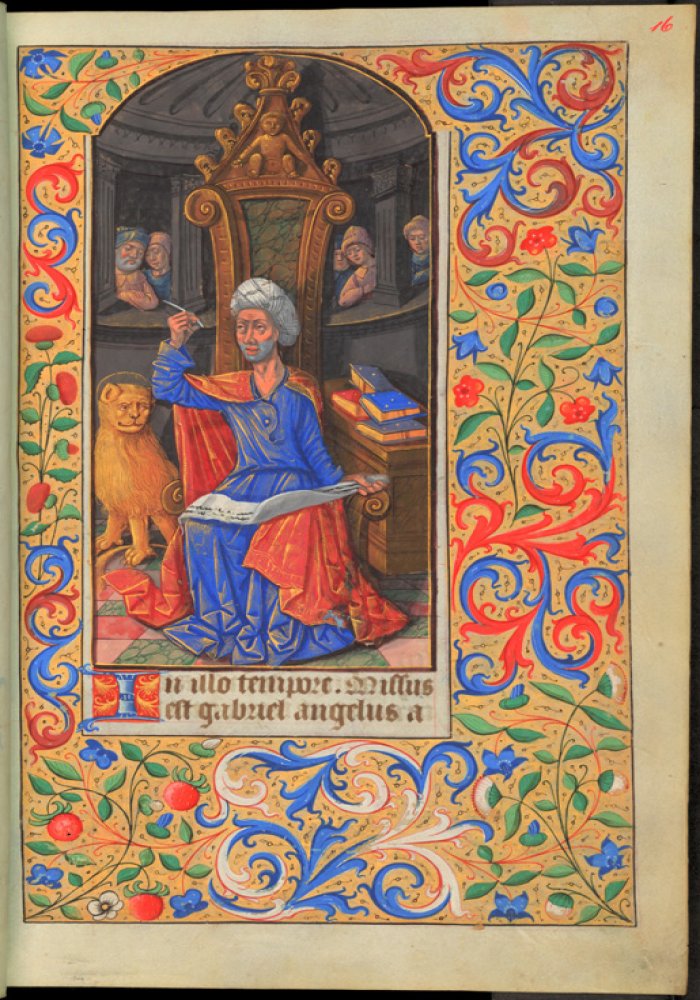 16
In illo tempore. Missus
est gabriel angelus a